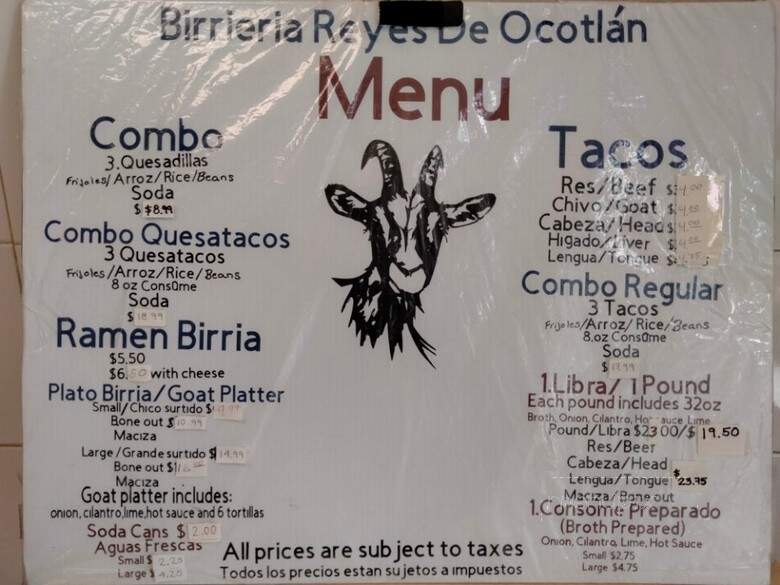 Birrieria Reyes De Ocotlán
Menu
Combo
3.Quesadillas
Frijoles/Arroz/Rice/Beans
Soda
$ $8.99
Combo Quesatacos
3 Quesatacos
Frijoles/Arroz/Rice/Beans
8 oz Consome
Soda
$ 18.99
Ramen Birria
$5.50
$6.50 with cheese
Plato Birria/Goat Platter
Small/Chico surtido $
Bone out $ 10.99
Maciza
Large/Grande surtido $ 14.99
Bone out $
Maciza
Goat platter includes:
onion,cilantro,lime,hot sauce and 6 tortillas
Soda Cans $ 2.00
Aguas Frescas
Small $ 2.25
Large $ 4.25
Tacos
Res/Beef $ 4.00
Chivo/Goat $ 4.00
Cabeza/Heads $ 4.00
Higado/Liver $
Lengua/Tongue $
Combo Regular
3 Tacos
Frijoles/Arroz/Rice/Beans
8.oz Consome
Soda
$ 17.99
1.Libra/1 Pound
Each pound includes 32oz
Broth, Onion, Cilantro, Hot Sauce Lime
Pound/Libra $23 00/$ 19.50
Res/Beer
Cabeza/Head
Lengua/Tongue $23.75
Maciza/Bone out
1.Consome Preparado
(Broth Prepared)
Onion, Cilantro, Lime, Hot Sauce
Small $2.75
Large $4.75
All prices are subject to taxes
Todos los precios estan sujetos a impuestos